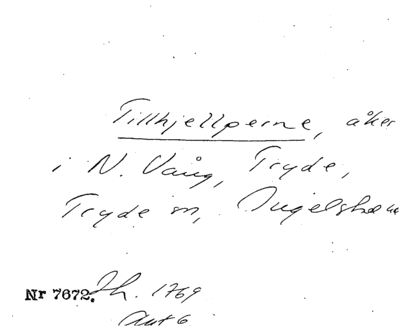 Tillhjellperne, åker
i N. Vång, Tryde,
Tryde sn, Ingelstads
Nr 7672. Sh. 1769
Akt 6